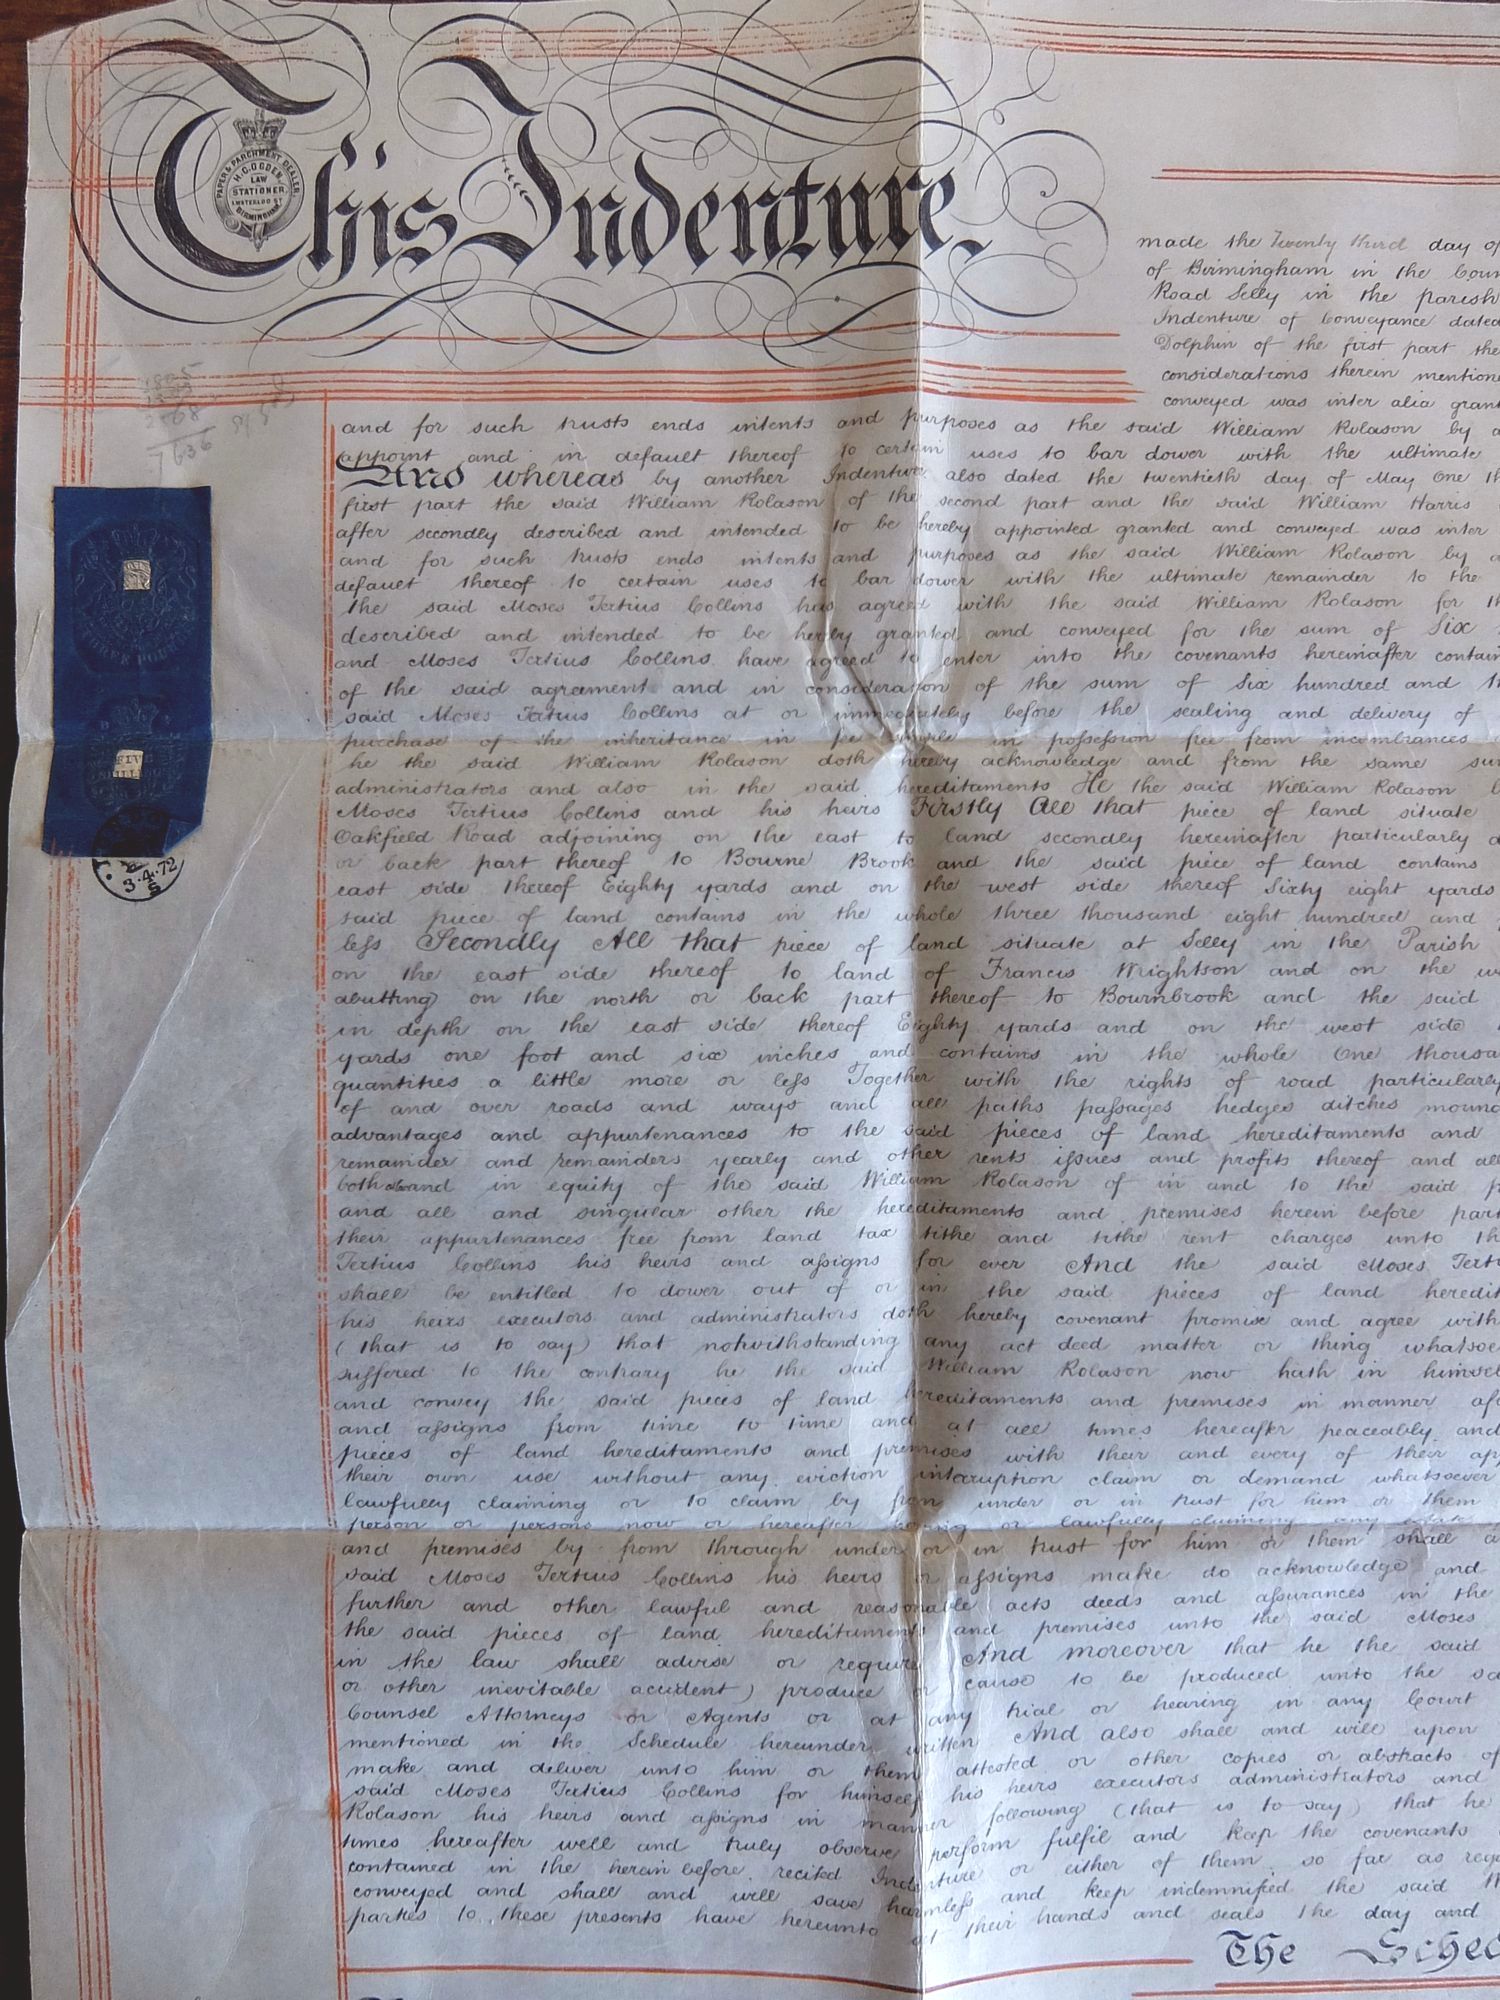 This Indenture
PAPER & PARCHMENT DEALER
H.C. OGDEN
LAW
STATIONER
WATERLOO ST
BIRMINGHAM
made the Twenty third day of
of Birmingham in the Coun
Road Selly in the parish
Indenture of Conveyance dated
Dolphin of the first part the
considerations therein mentione
conveyed was inter alia grant
and for such trusts ends intents and purposes as the said William Rolason by
appoint and in default thereof to certain uses to bar dower with the ultimate
And whereas by another Indenture also dated the twentieth day of May One th
first part the said William Rolason of the second part and the said William Harris
after secondly described and intended to be hereby appointed granted and conveyed was inter
and for such trusts ends intents and purposes as the said William Rolason by
default thereof to certain uses to bar dower with the ultimate remainder to the
the said Moses Tertius Collins has agreed with the said William Rolason for th
described and intended to be hereby granted and conveyed for the sum of Six
and Moses Tertius Collins have agreed to enter into the covenants hereinafter contain
of the said agreement and in consideration of the sum of Six hundred and th
said Moses Tertius Collins at or immediately before the sealing and delivery of
purchase of the inheritance in fee simple in possession free from incumbrances
he the said William Rolason doth hereby acknowledge and from the same su
administrators and also in the said hereditaments He the said William Rolason
Moses Tertius Collins and his heirs Firstly All that piece of land situate
Oakfield Road adjoining on the east to land secondly hereinafter particularly d
or back part thereof to Bourne Brook and the said piece of land contains
east side thereof Eighty yards and on the west side thereof Sixty eight yards
said piece of land contains in the whole three thousand eight hundred and
less Secondly All that piece of land situate at Selly in the Parish
on the east side thereof to land of Francis Wrightson and on the w
abutting on the north or back part thereof to Bournbrook and the said
in depth on the east side thereof Eighty yards and on the west side
yards one foot and six inches and contains in the whole One thousa
quantities a little more or less Together with the rights of road particularly
of and over roads and ways and all paths passages hedges ditches moun
advantages and appurtenances to the said pieces of land hereditaments and
remainder and remainders yearly and other rents issues and profits thereof and all
both and in equity of the said William Rolason of in and to the said p
and all and singular other the hereditaments and premises herein before part
their appurtenances free from land tax tithe and tithe rent charges unto th
Tertius Collins his heirs and assigns for ever And the said Moses Terti
shall be entitled to dower out of or in the said pieces of land heredit
his heirs executors and administrators doth hereby covenant promise and agree with
(that is to say) that notwithstanding any act deed matter or thing whatsoe
suffered to the contrary he the said William Rolason now hath in himsel
and convey the said pieces of land hereditaments and premises in manner af
and assigns from time to time and at all times hereafter peaceably and
pieces of land hereditaments and premises with their and every of their ap
their own use without any eviction interruption claim or demand whatsoever
lawfully claiming or to claim by from under or in trust for him or them
person or persons now or hereafter having or lawfully claiming any estate
and premises by from through under or in trust for him or them shall a
said Moses Tertius Collins his heirs or assigns make do acknowledge and
further and other lawful and reasonable acts deeds and assurances in the
the said pieces of land hereditaments and premises unto the said Moses
in the law shall advise or require And moreover that he the said
or other inevitable accident) produce or cause to be produced unto the sa
Counsel Attorneys or Agents or at any trial or hearing in any Court
mentioned in the Schedule hereunder written And also shall and will upon
make and deliver unto him or them attested or other copies or abstracts of
said Moses Tertius Collins for himself his heirs executors administrators and
Rolason his heirs and assigns in manner following (that is to say) that he
times hereafter well and truly observe perform fulfil and keep the covenants
contained in the herein before recited Indenture or either of them so far as reg
conveyed and shall and will save harmless and keep indemnified the said W
parties to these presents have hereunto set their hands and seals the day and
The Sched
THREE POUNDS
FIVE
SHILLINGS
3.4.72